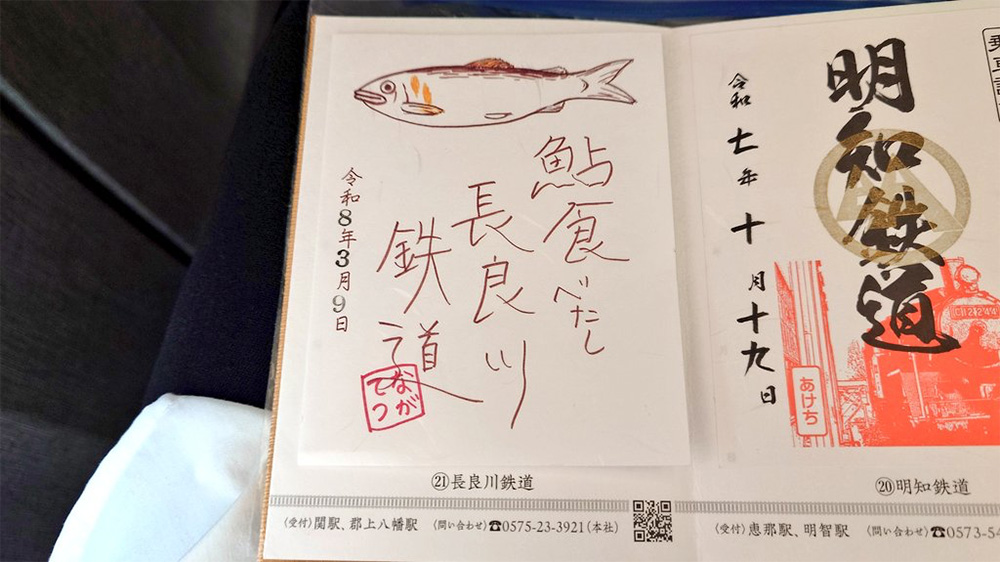 鮎食べたし
長良川
鉄道
ながてつ
令和8年3月9日
㉑長良川鉄道
〈受付〉関駅、郡上八幡駅 〈問い合わせ〉☎0575-23-3921(本社)
明知鉄道
令和七年十月十九日
あけち
⑳明知鉄道
〈受付〉恵那駅、明智駅 〈問い合わせ〉☎0573-54